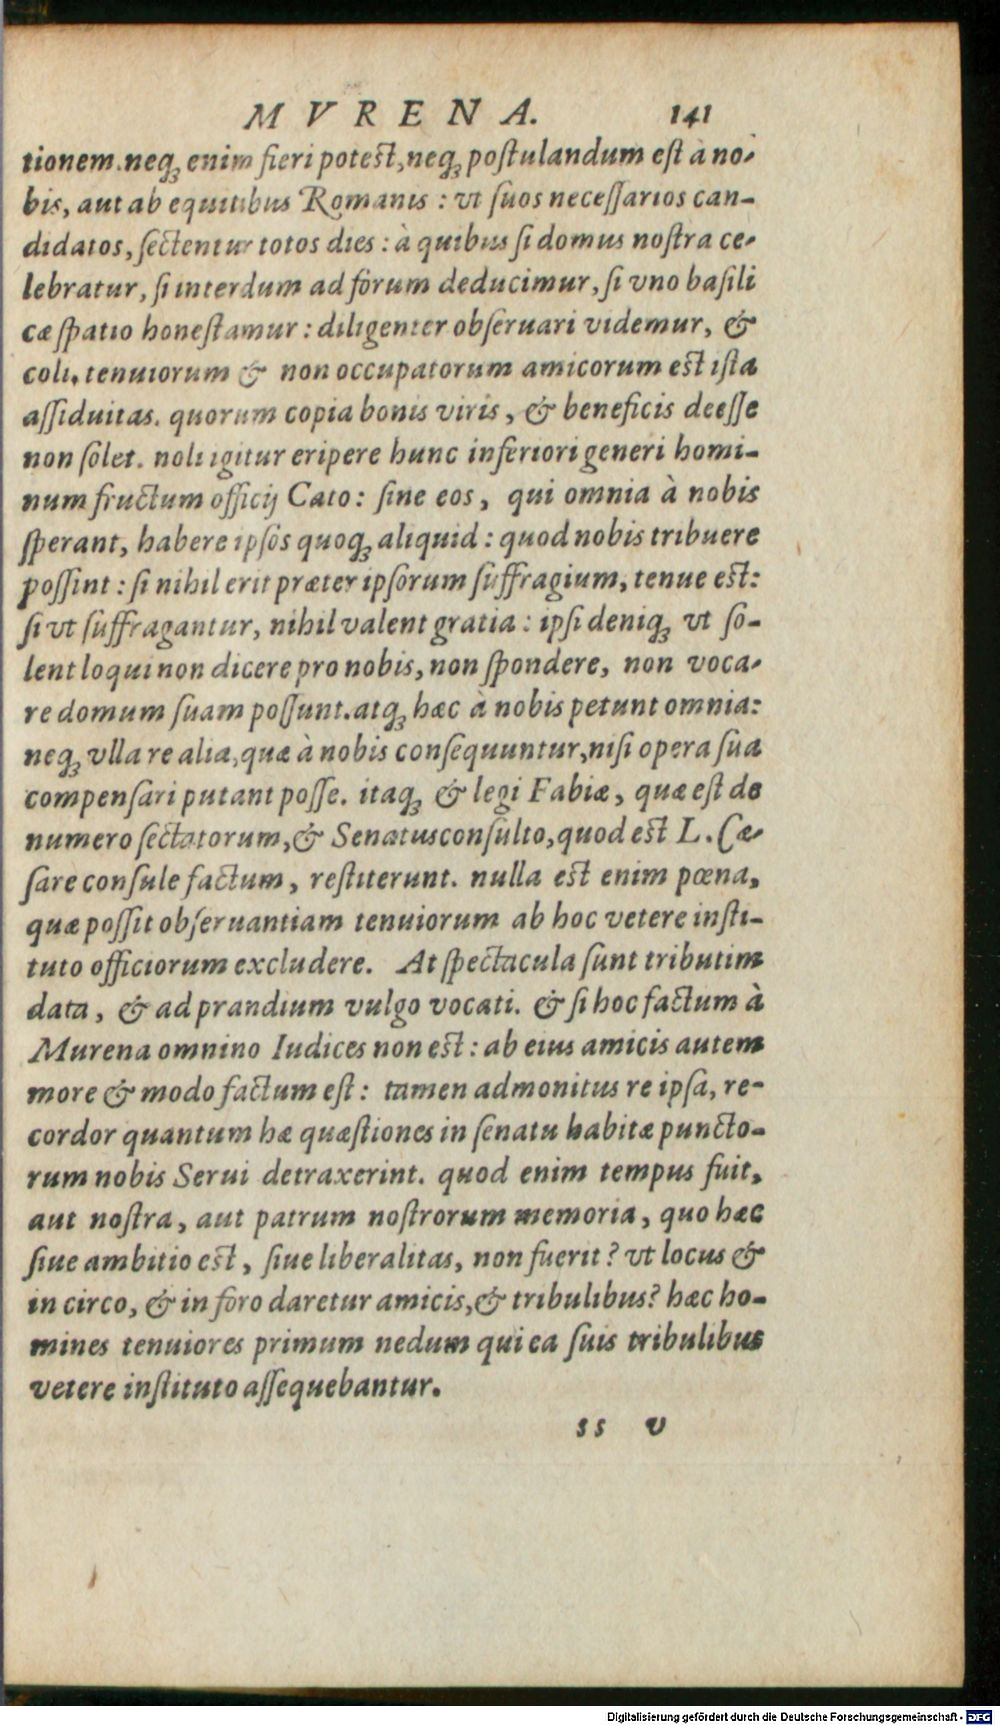 MVRENA. 141
tionem. neq́ꝫ enim fieri potest, neqꝫ postulandum est à no-
bis, aut ab equitibus Romanis : vt suos necessarios can-
didatos, sectentur totos dies : à quibus si domus nostra ce-
lebratur, si interdum ad forum deducimur, si vno basili
cæ spatio honestamur : diligenter obseruari videmur, &
coli. tenuiorum & non occupatorum amicorum est ista
assiduitas. quorum copia bonis viris, & beneficis deesse
non solet. noli igitur eripere hunc inferiori generi homi-
num fructum officij Cato : sine eos, qui omnia à nobis
sperant, habere ipsos quoqꝫ aliquid : quod nobis tribuere
possint : si nihil erit præter ipsorum suffragium, tenue est:
si vt suffragantur, nihil valent gratia : ipsi deniqꝫ vt so-
lent loqui non dicere pro nobis, non spondere, non voca-
re domum suam possunt. atqꝫ hæc à nobis petunt omnia:
neqꝫ vlla re alia, quæ à nobis consequuntur, nisi opera sua
compensari putant posse. itaqꝫ & legi Fabiæ, quæ est de
numero sectatorum, & Senatusconsulto, quod est L. Cæ-
sare consule factum, restiterunt. nulla est enim pœna,
quæ possit obseruantiam tenuiorum ab hoc vetere insti-
tuto officiorum excludere. At spectacula sunt tributim
data, & ad prandium vulgo vocati. & si hoc factum à
Murena omnino Iudices non est : ab eius amicis autem
more & modo factum est : tamen admonitus re ipsa, re-
cordor quantum hæ quæstiones in senatu habitæ puncto-
rum nobis Serui detraxerint. quod enim tempus fuit,
aut nostra, aut patrum nostrorum memoria, quo hæc
siue ambitio est, siue liberalitas, non fuerit? vt locus &
in circo, & in foro daretur amicis, & tribulibus? hæc ho-
mines tenuiores primum nedum qui ea suis tribulibus
vetere instituto assequebantur.
ss v
Digitalisierung gefördert durch die Deutsche Forschungsgemeinschaft - DFG